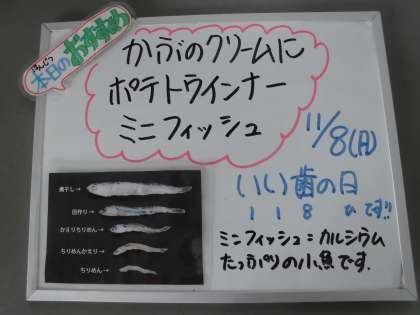 ほんじつ
本日のおすすめ
かぶのクリームに
ポテトウインナー
ミニフィッシュ
11/8(月)
いい歯の日
1 1 8 ひです!!
ミニフィッシュ:カルシウム
たっぷりの小魚です.
煮干し→
田作り→
かえりちりめん→
ちりめんかえり→
ちりめん→